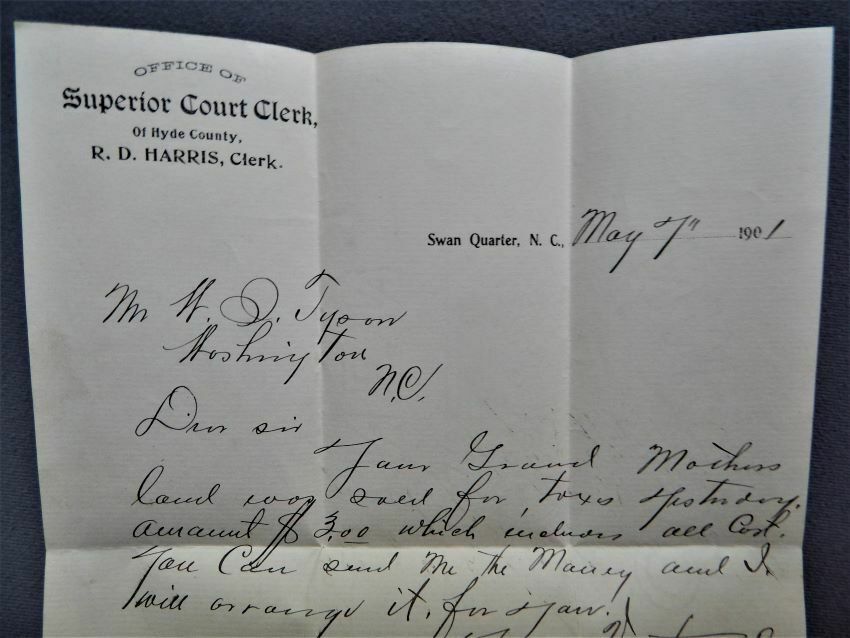 OFFICE OF
Superior Court Clerk,
Of Hyde County,
R. D. HARRIS, Clerk.
Swan Quarter, N. C., May 7" 1901
Mr W. D. Tyson
Washington
N.C.
Dear sir
Your Grand Mothers
land was sold for taxes yesterday.
amount $3.00 which includes all Cost.
You Can send me the Money and I
will arrange it, for you.